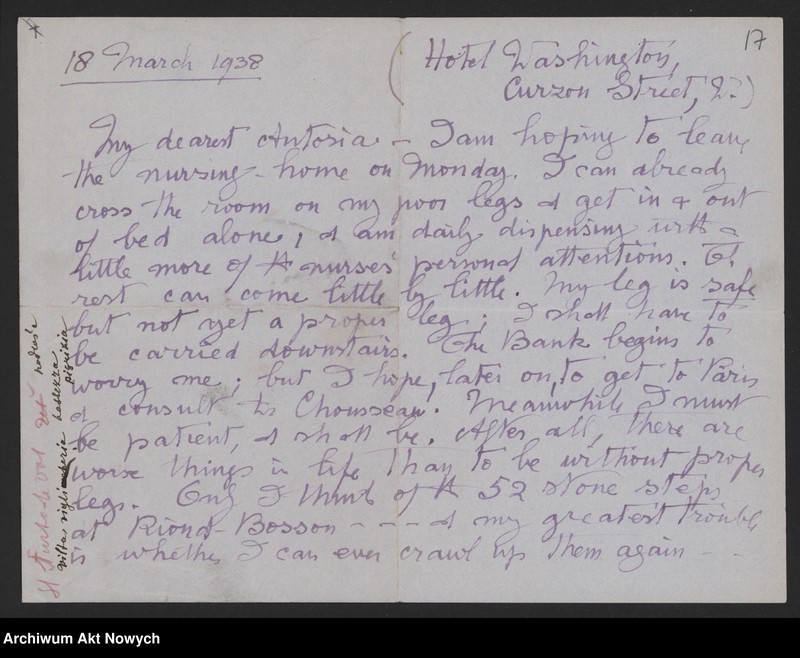 17
18 March 1938
(Hotel Washington,
Curzon Street, W.)
My dearest Antonia – I am hoping to leave
the nursing-home on Monday. I can already
cross the room on my poor legs & get in & out
of bed alone, & am daily dispensing with a
little more of the nurses' personal attentions. The
rest can come little by little. My leg is safe
but not yet a proper leg; I shall have to
be carried downstairs. The Bank begins to
worry me; but I hope, later on, to get to Paris
& consult Dr Chousséau. Meanwhile I must
be patient, & shall be. After all, there are
worse things in life than to be without proper
legs. Only I think of the 52 stone steps
at Riond-Bosson - - - & my greatest trouble
is whether I can ever crawl up them again - -
Archiwum Akt Nowych